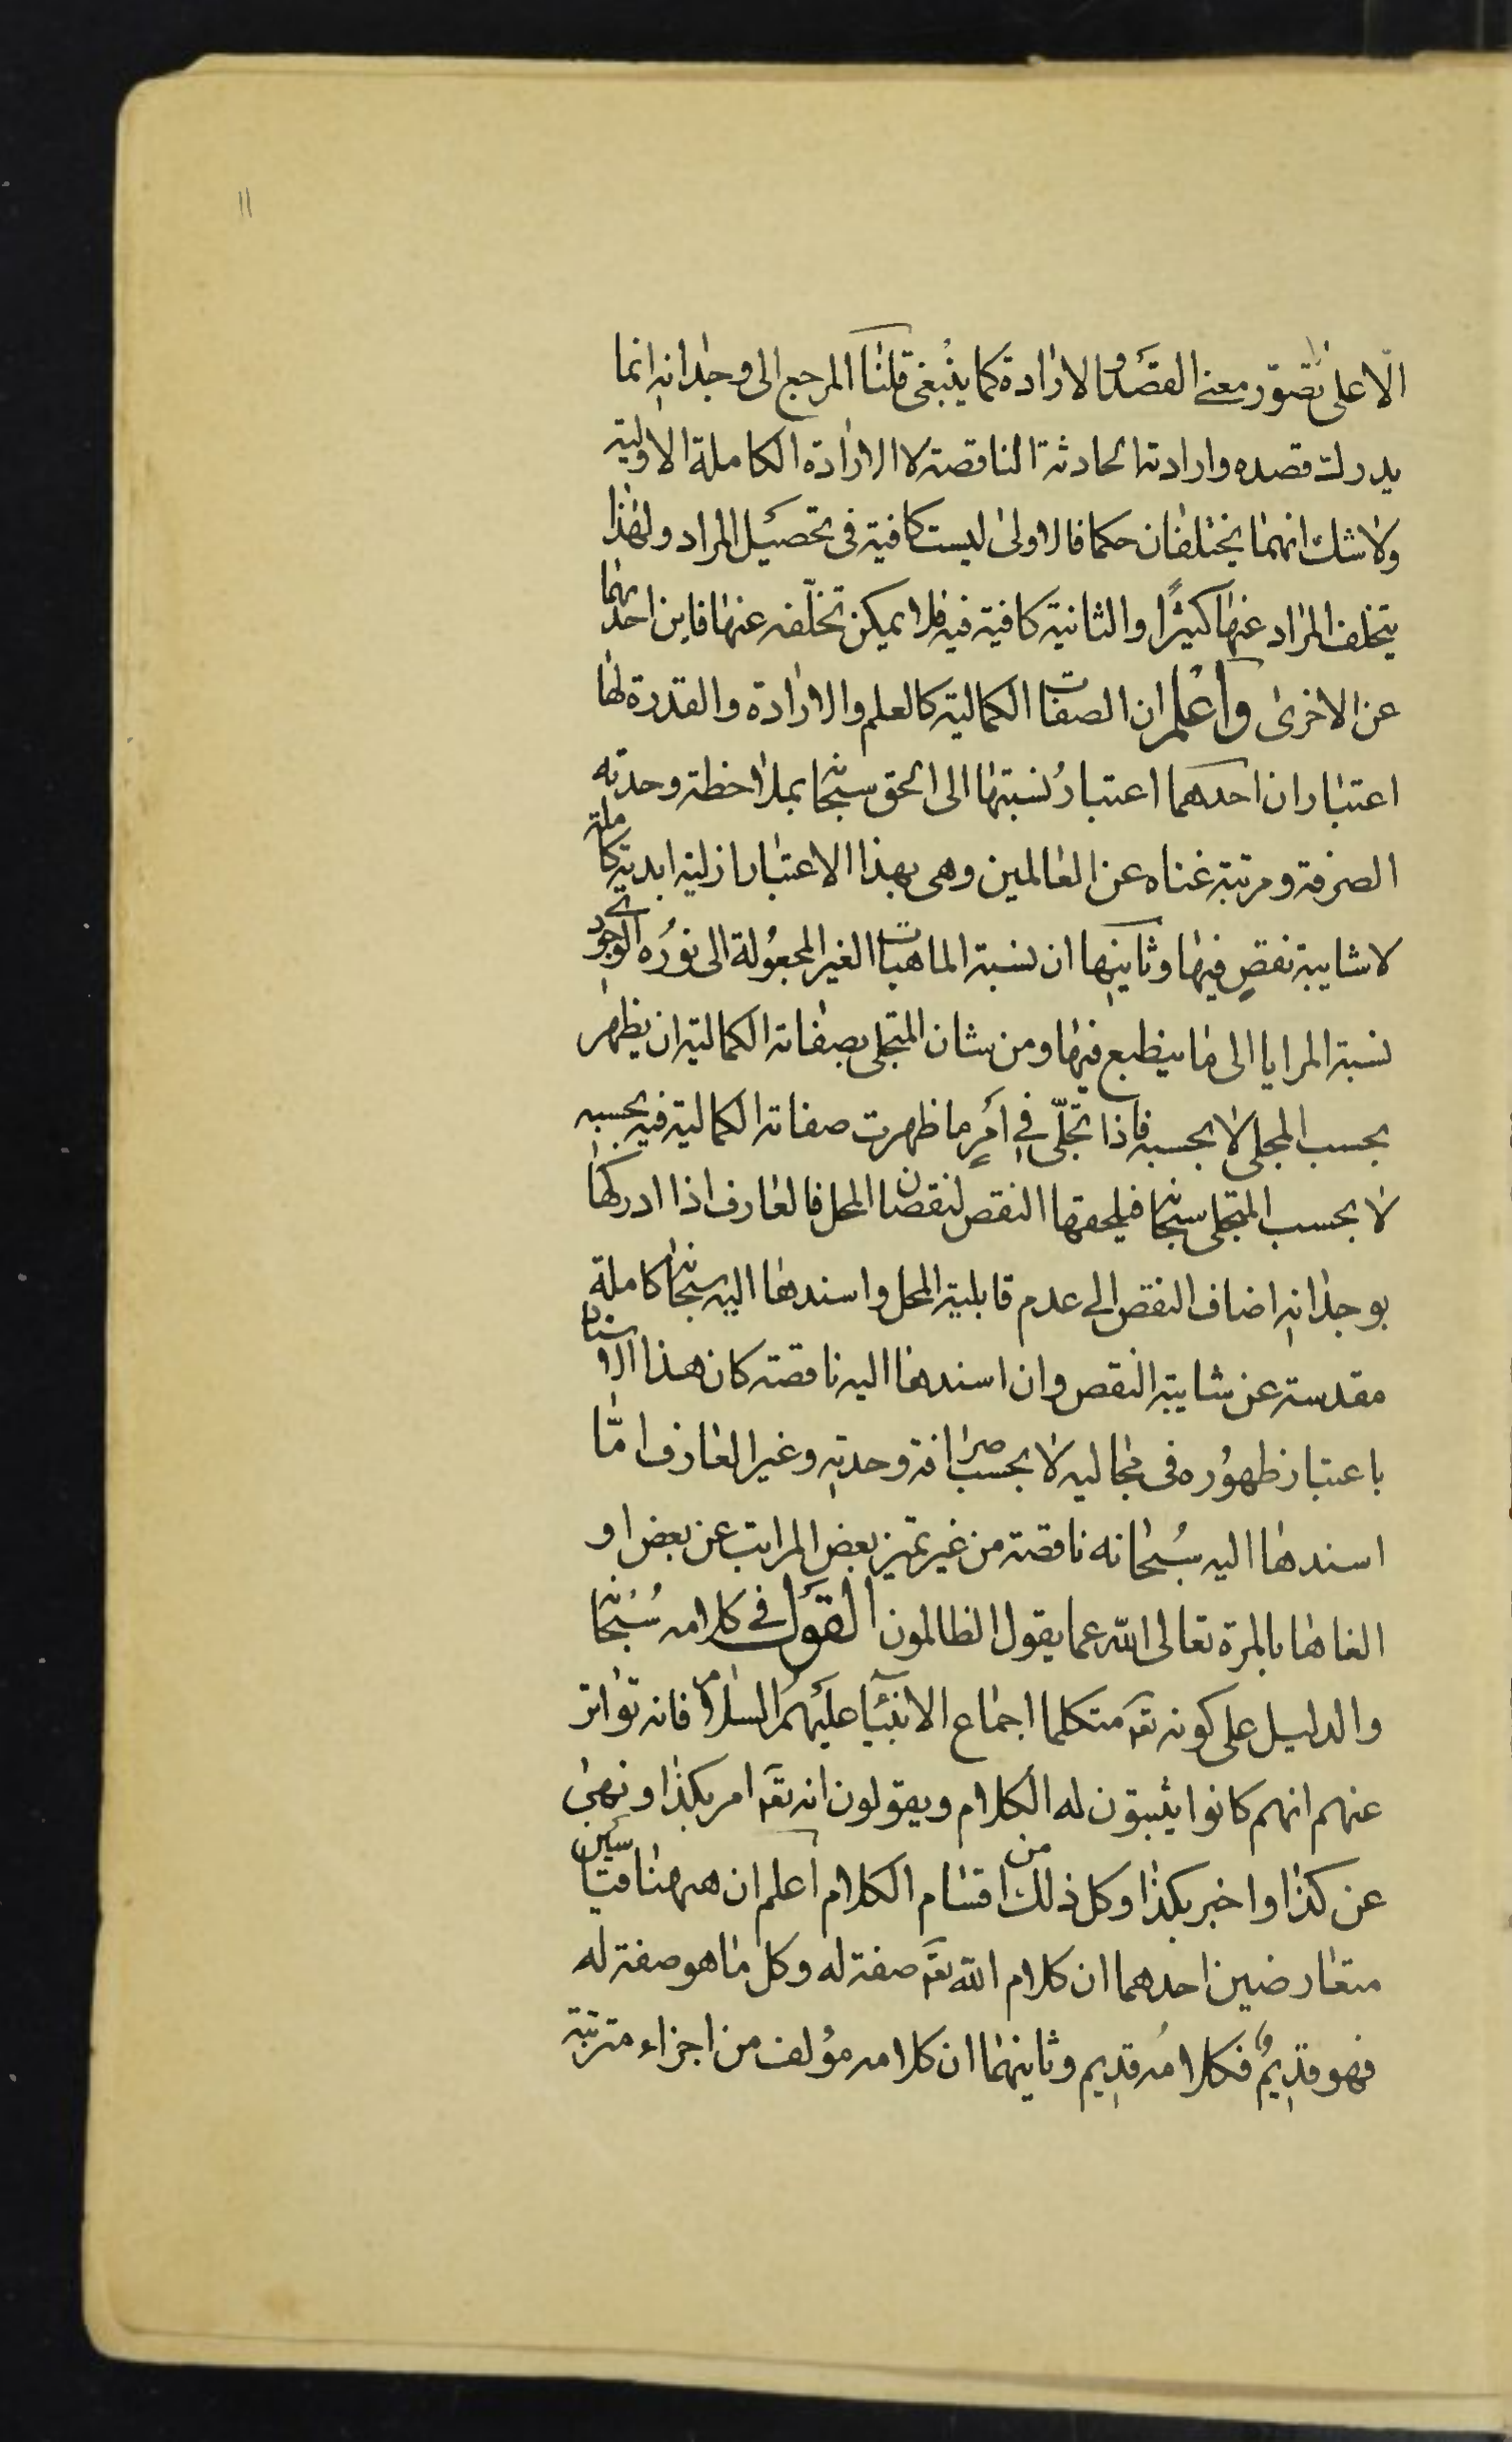 ١١
الّا على تصوّر معنى القصد والارادة كما ينبغى قلنا المرجع الى وجدانه انما
يدرك قصده وارادته الحادثة الناقصة لا الارادة الكاملة الاولية
ولا شك انهما يختلفان حكما فالاولى ليست كافية فى تحصيل المراد ولهذا
يتخلف المراد عنها كثيرًا والثانية كافية فيه فلا يمكن تخلّفه عنها فاين احديهما
عن الاخرى واعلم ان الصفات الكمالية كالعلم والارادة والقدرة لها
اعتباران احدهما اعتبارُ نسبتها الى الحق سبحانه بملاحظة وحدته
الصرفة ومرتبة غناه عن العالمين وهى بهذا الاعتبار ازلية ابدية كاملة
لا شايبة نقصٍ فيها وثانيها ان نسبة الماهيات الغير المجعُولة الى نوُره الوجودى
نسبة المرايا الى ما ينطبع فيها ومن شان المتجلى بصفاته الكمالية ان يظهر
بحسب المجلى لا بحسبه فاذا تجلّى فى امرٍ ما ظهرت صفاته الكمالية فيه بحسبه
لا بحسب المتجلى سبحانه فيلحقها النقص لنقصان المحل فالعارف اذا ادركها
بوجدانه اضاف النقص الى عدم قابلية المحل واسندها اليه سبحانه كاملة
مقدسة عن شايبة النقص وان اسندها اليه ناقصة كان هذا الاسناد
باعتبار ظهوُره فى مجاليه لا بحسب صرافة وحدته وغير العارف امّا
اسندها اليه سُبحانه ناقصة من غير تميز بعض المراتب عن بعض او
الغاها بالمرة تعالى الله عما يقول الظالمون القول فى كلامه سُبحانه
والدليل على كونه تعه متكلما اجماع الانبيآ عليهم السلام فانه تواتر
عنهم انهم كانوا يثبتون له الكلام ويقولون انه تعه امر بكذا ونهى
عن كذا واخبر بكذا وكل ذلك من اقسام الكلام اعلم ان ههنا قياسين
متعارضين احدهما ان كلام الله تعه صفة له وكل ما هو صفة له
فهو قديمٌ فكلامُه قديم وثانيهما ان كلامه مؤلف من اجزاء مترتبة